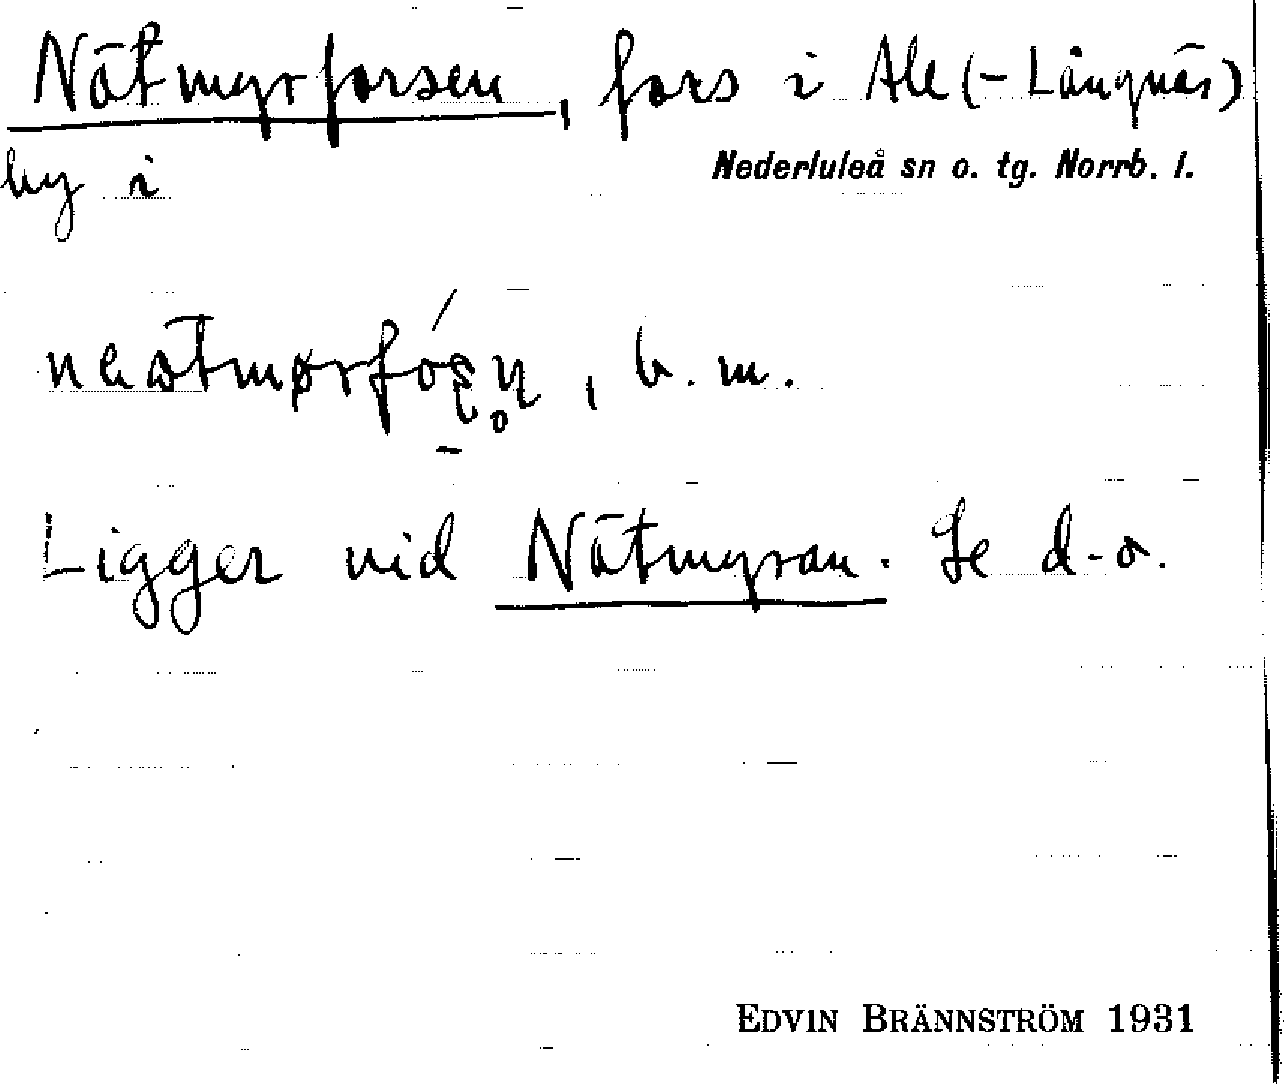 Nätmyrforsen, fors i Ale (-Långnäs)
by i Nederluleå sn o. tg. Norrb. l.
b. m.
Ligger vid Nätmyran. Se d-o.
EDVIN BRÄNNSTRÖM 1931